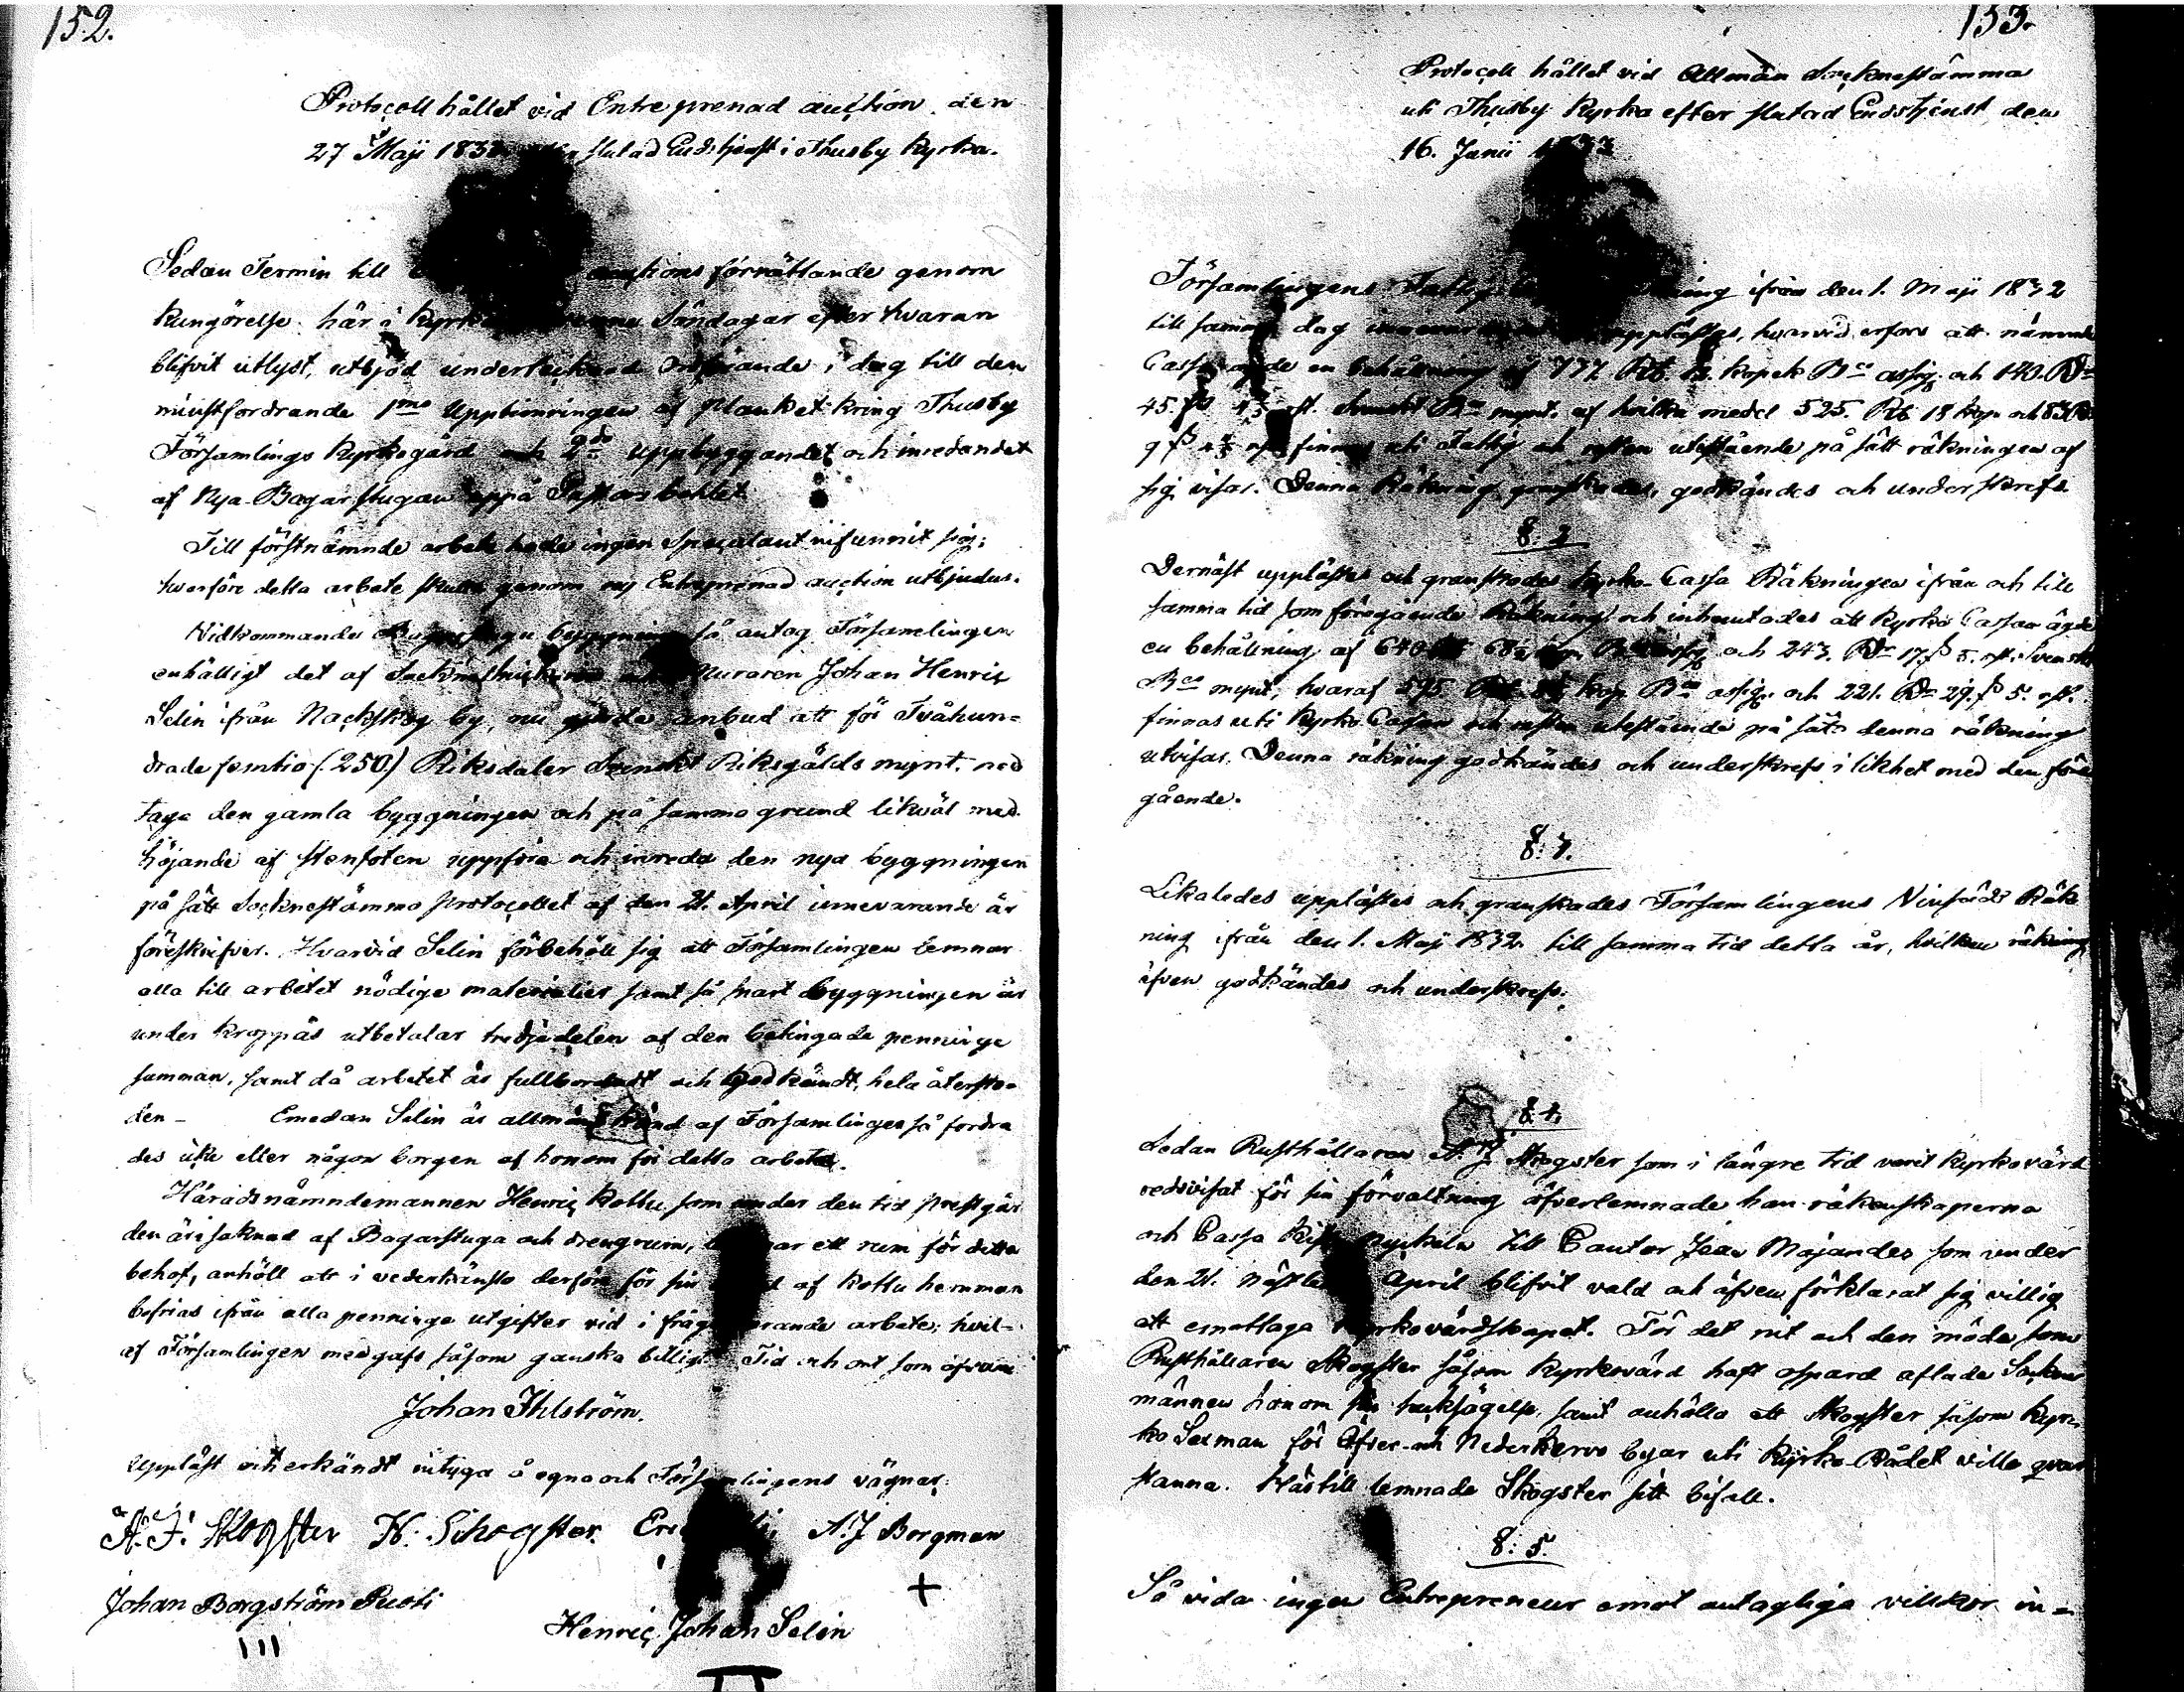 152.
Protocoll hållet vid Entreprenad auction den
27 Maji 1833 slutad Gudstjenst i Thusby Kyrka.
Sedan Termin till auctions förrättande genom
Kungörelse här i Söndagar efter hvaran
blifvit utlyst, utbjöd undertecknad Ordförande i dag till den
minstfordrande 1mo Upptimringen af planket kring Thusby
Församlings Kyrkogård och 2do uppbyggandet och inredandet
af Nya Bagarstugan uppå Pastorsbohlet.
Till förstnämnde arbete hade ingen Speculant infunnit sig;
hvarföre detta arbete skulle genom ny Entreprenad auction utbjudas.
Vidkommande byggning så antog Församlingen
enhälligt det af Muraren Johan Henric
Selin ifrån Nackskog by, nu gjorde anbud att för Tvåhun=
drade femtio (250.) Riksdaler Svenskt Riksgälds mynt. ned
taga den gamla byggningen och på samma grund likväl med
höjande af stenfoten uppföra och inreda den nya byggningen
på sätt Socknestämmo protocollet af den 21. April innevarande år
föreskrifver. Hvarvid Selin förbehöll sig att Församlingen lemnar
alla till arbetet nödige materialier samt så snart byggningen är
under kroppås utbetalar tredjedelen af den betingade penninge
summan, samt då arbetet är fullbordadt och Godkändt, hela återsto=
den - Emedan Selin är allmänt känd af Församlingen så fordra
des icke eller någon borgen af honom för detta arbete.
Häradsnämndemannen Henric Kottu som under den tid prestgår
den är i saknad af Bagarstuga och drengrum, ett rum för detta
behof, anhöll att i vederkänsla derföre för sin af Kottu hemman
befrias ifrån alla penninge utgifter vid i fråga varande arbete; hvil-
af Församlingen medgafs såsom ganska billigt. Tid och ort som ofvan
Johan Ihlström.
Uppläst och erkändt intyga å egna och Församlingens vägnar:
A. J. Skogster H. Schogster. A. J Borgman
Johan Borgström Pusti
Henric Johan Selin
153.
Protocoll hållet vid Allmän Socknestämma
uti Thusby Kyrka efter slutad Gudstjenst den
16. Junii 1833
Församlingens ifrån den 1. Maji 1832
till samma dag upplästes, hvarvid erfors att nämnde
Cassa ägde en behållning af 777 Rb. 12. kopek Bco assig. och 140. Rdr
45. sk Svenskt Bco mynt. af hvilka medel 525. Rb 18 kop och
finnas uti och resten utestående på sätt räkningen af
sig visar. Denna Räkning granskades, godkändes och underskrefs
§. 2
Dernäst upplästes och granskades Kyrko-Cassa Räkningen ifrån och till
samma tid som föregående Räkning och inhemtades att Kyrko Cassan ägde
en behållning af 640 och 243. Rdr 17. sk 5. rst. Svenskt
Bco mynt, hvaraf 595. kop. Bco assig. och 221. Rdr 29. sk 5. rst.
finnas uti Kyrko Cassan och resten utestående på sätt denna räkning
utvisar. Denna räkning godkändes och underskrefs i likhet med den före
gående.
§: 3.
Likaledes upplästes och granskades Församlingens Vinsäds Räk
ning ifrån den 1. Maji 1832. till samma tid detta år, hvilken räkning
äfven godkändes och underskrefs.
§ 4.
Sedan Rusthållaren A. J Skogster som i längre tid varit Kyrkovärd
redovisat för sin förvaltning öfverlemnade han räkenskaperna
och Cassa Kist nyckeln till Cantor Jean Majander som under
den 21. April blifvit vald och äfven förklarat sig villig
att emottaga Kyrkovärdskapet. För det nit och den möda som
Rusthållaren Skogster såsom Kyrkovärd haft ospard aflade Socken
männen honom sin tacksägelse, samt anhölla att Skogster såsom Kyr-
ko Sexman för Öfver- och Nederkervo byar uti Kyrko-Rådet ville qvar
stanna. Härtill lemnade Skogster sitt bifall.
§: 5.
Så vida ingen Entrepreneur emot antagliga villkor in=